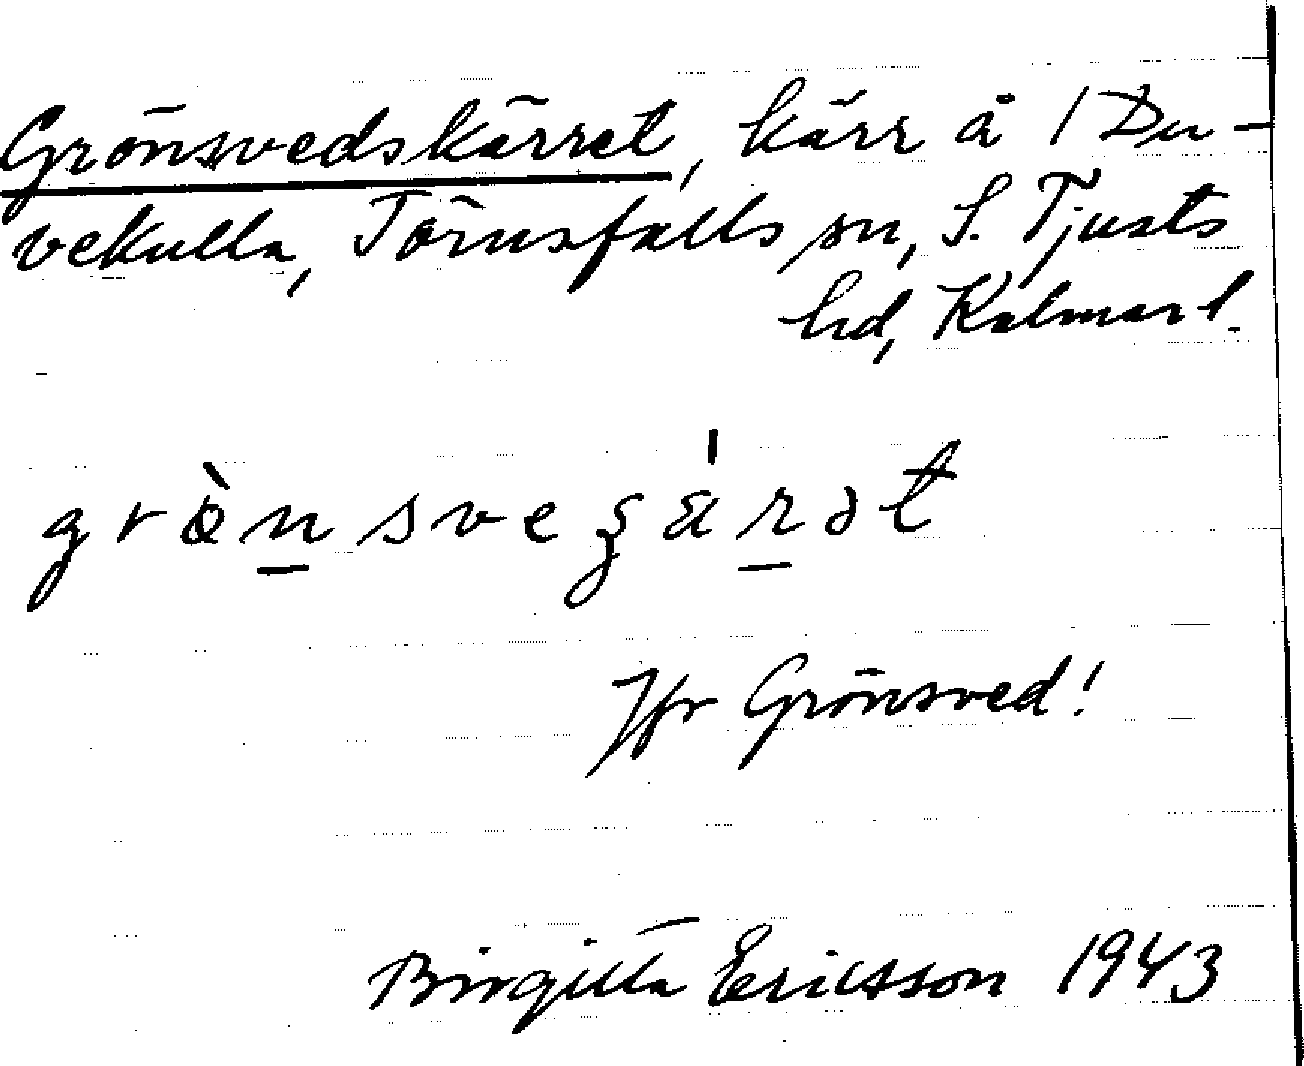 Grönsvedskärret, kärr å 1 Du-
vekulla, Törnsfalls sn, S. Tjusts
hd, Kalmar l.
Jfr Grönsved!
Birgitta Ericsson 1943